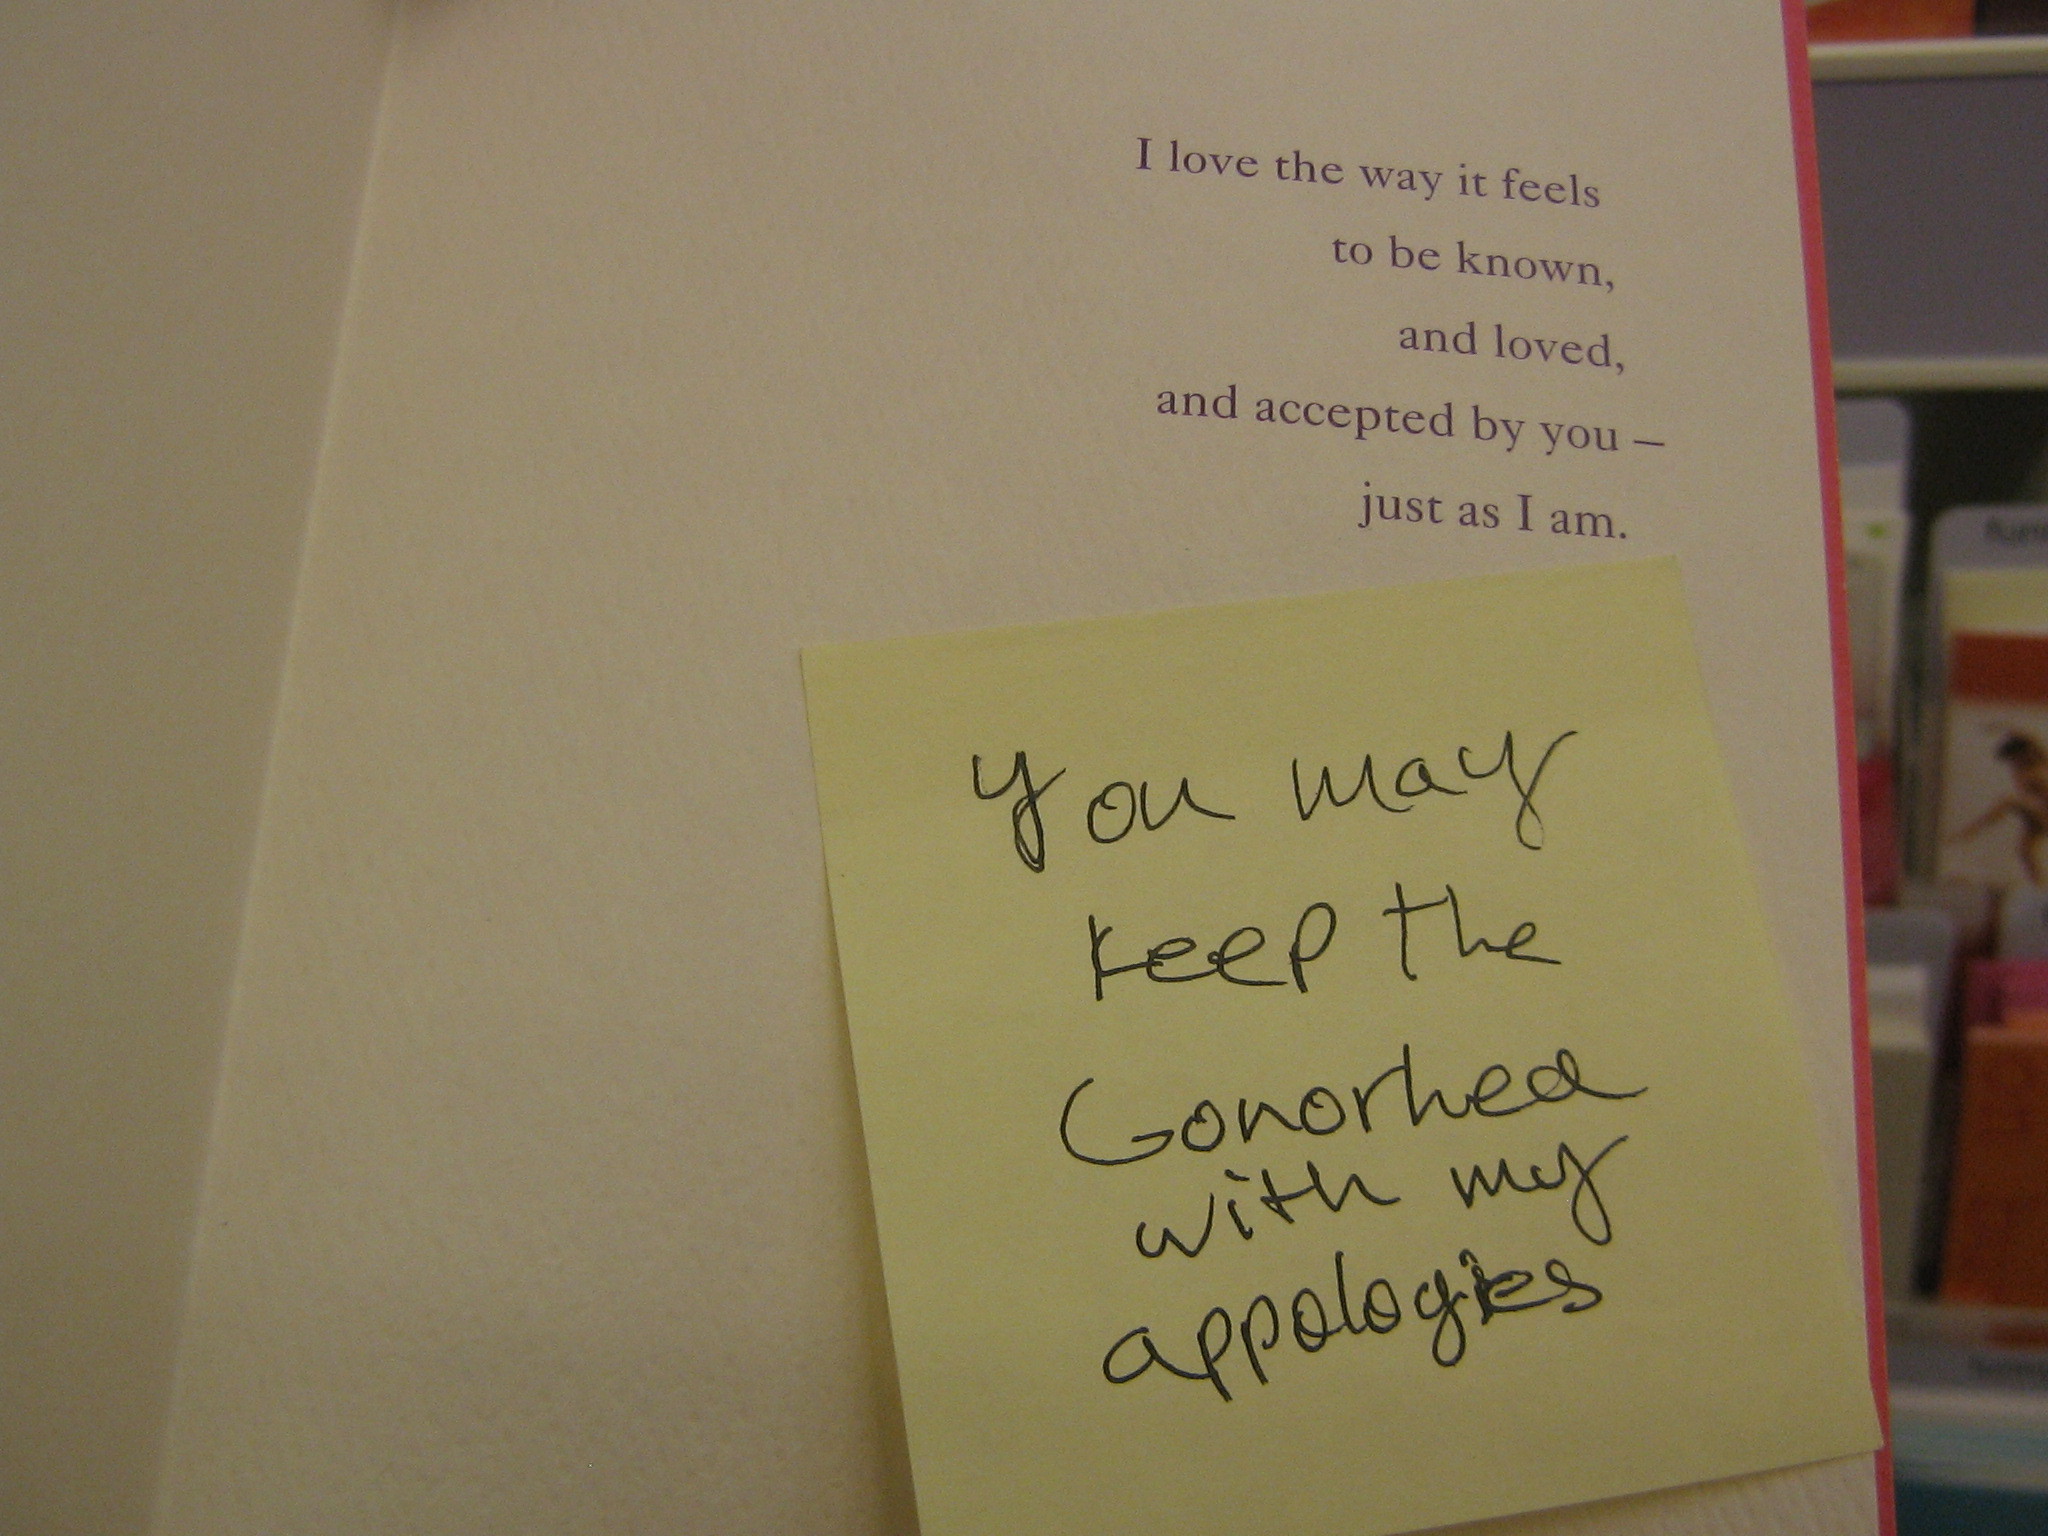 I love the way it feels
to be known,
and loved,
and accepted by you –
just as I am.
You may
keep the
Gonorhea
with my
appologies